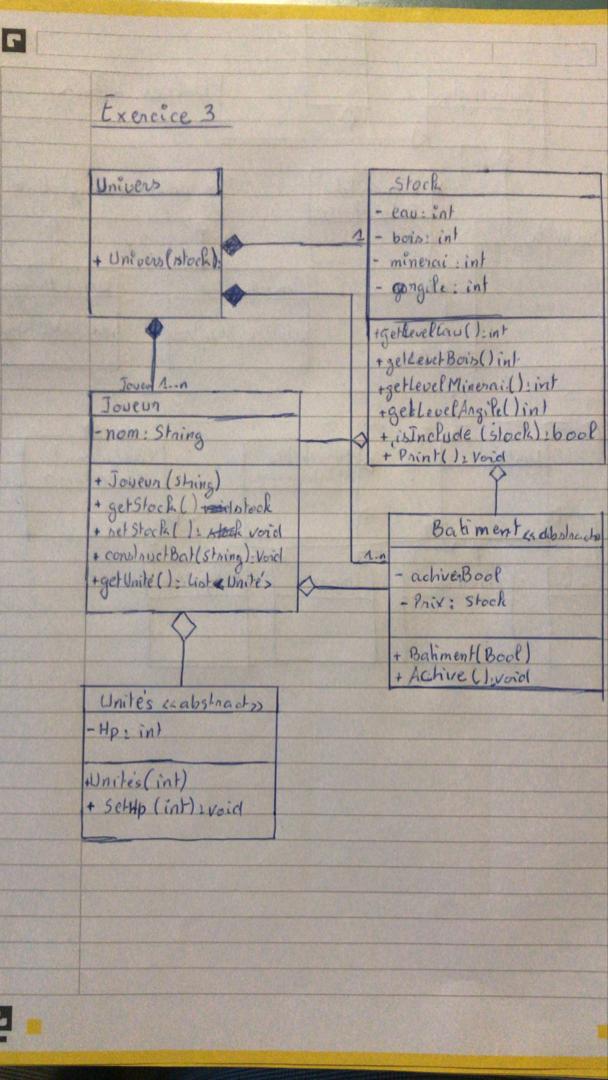 Exercice 3
Univers
+ Univers(stock);
1
1..n
Stock
- eau: int
- bois: int
- minerai: int
- gargile: int
+getLevelEau():int
+getLevelBois() int
+getLevelMinerai(): int
+getLevelArgile() int
+ isInclude (stock): bool
+ Print(): void
Joueur
- nom: String
+ Joueur(string)
+ getStock() void stock
+ setStock(): stock void
+ constructBat(string): void
+getUnité(): List<Unités>
1..n
Batiment <<abstract>>
- active:Bool
- Prix: Stock
+ Batiment(Bool)
+ Active():void
Unités <<abstract>>
- Hp: int
+Unités(int)
+ SetHp (int): void